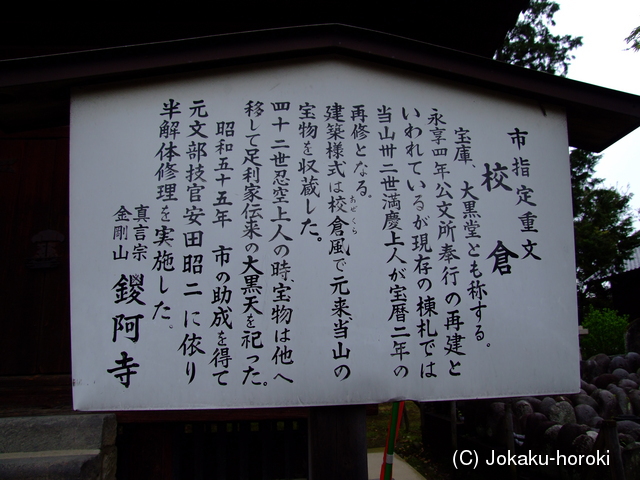 市指定重文
校倉
宝庫、大黒堂とも称する。
永享四年公文所奉行の再建と
いわれているが現存の棟札では
当山卅二世満慶上人が宝暦二年の
再修となる。
建築様式は校倉風で元来、当山の
あぜくら
宝物を収蔵した。
四十二世忍空上人の時、宝物は他へ
移して足利家伝来の大黒天を祀った。
昭和五十五年 市の助成を得て
元文部技官安田昭二に依り
半解体修理を実施した。
真言宗
金剛山
鑁阿寺
(C) Jokaku-horoki